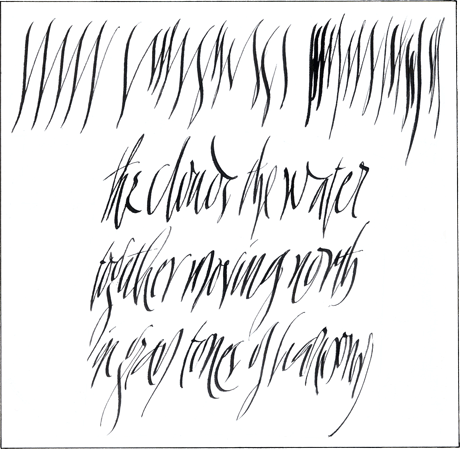 the clouds the water
together moving north
in gray tones of harmony